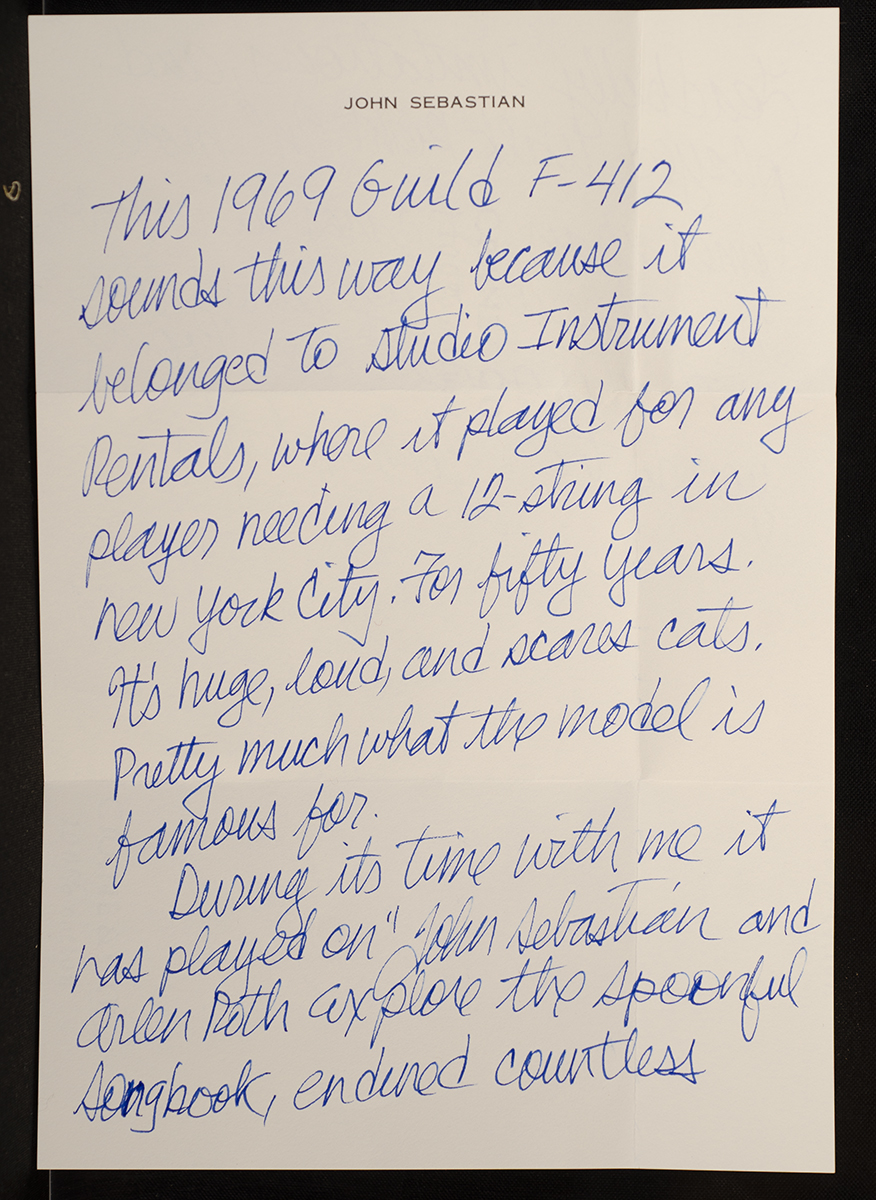 JOHN SEBASTIAN
This 1969 Guild F-412
sounds this way because it
belonged to Studio Instrument
Rentals, where it played for any
player needing a 12-string in
new York City. For fifty years.
It's huge, loud, and scares cats.
Pretty much what the model is
famous for.
During its time with me it
has played on "John Sebastian and
Arlen Roth explore the Spoonful
Songbook, endured countless